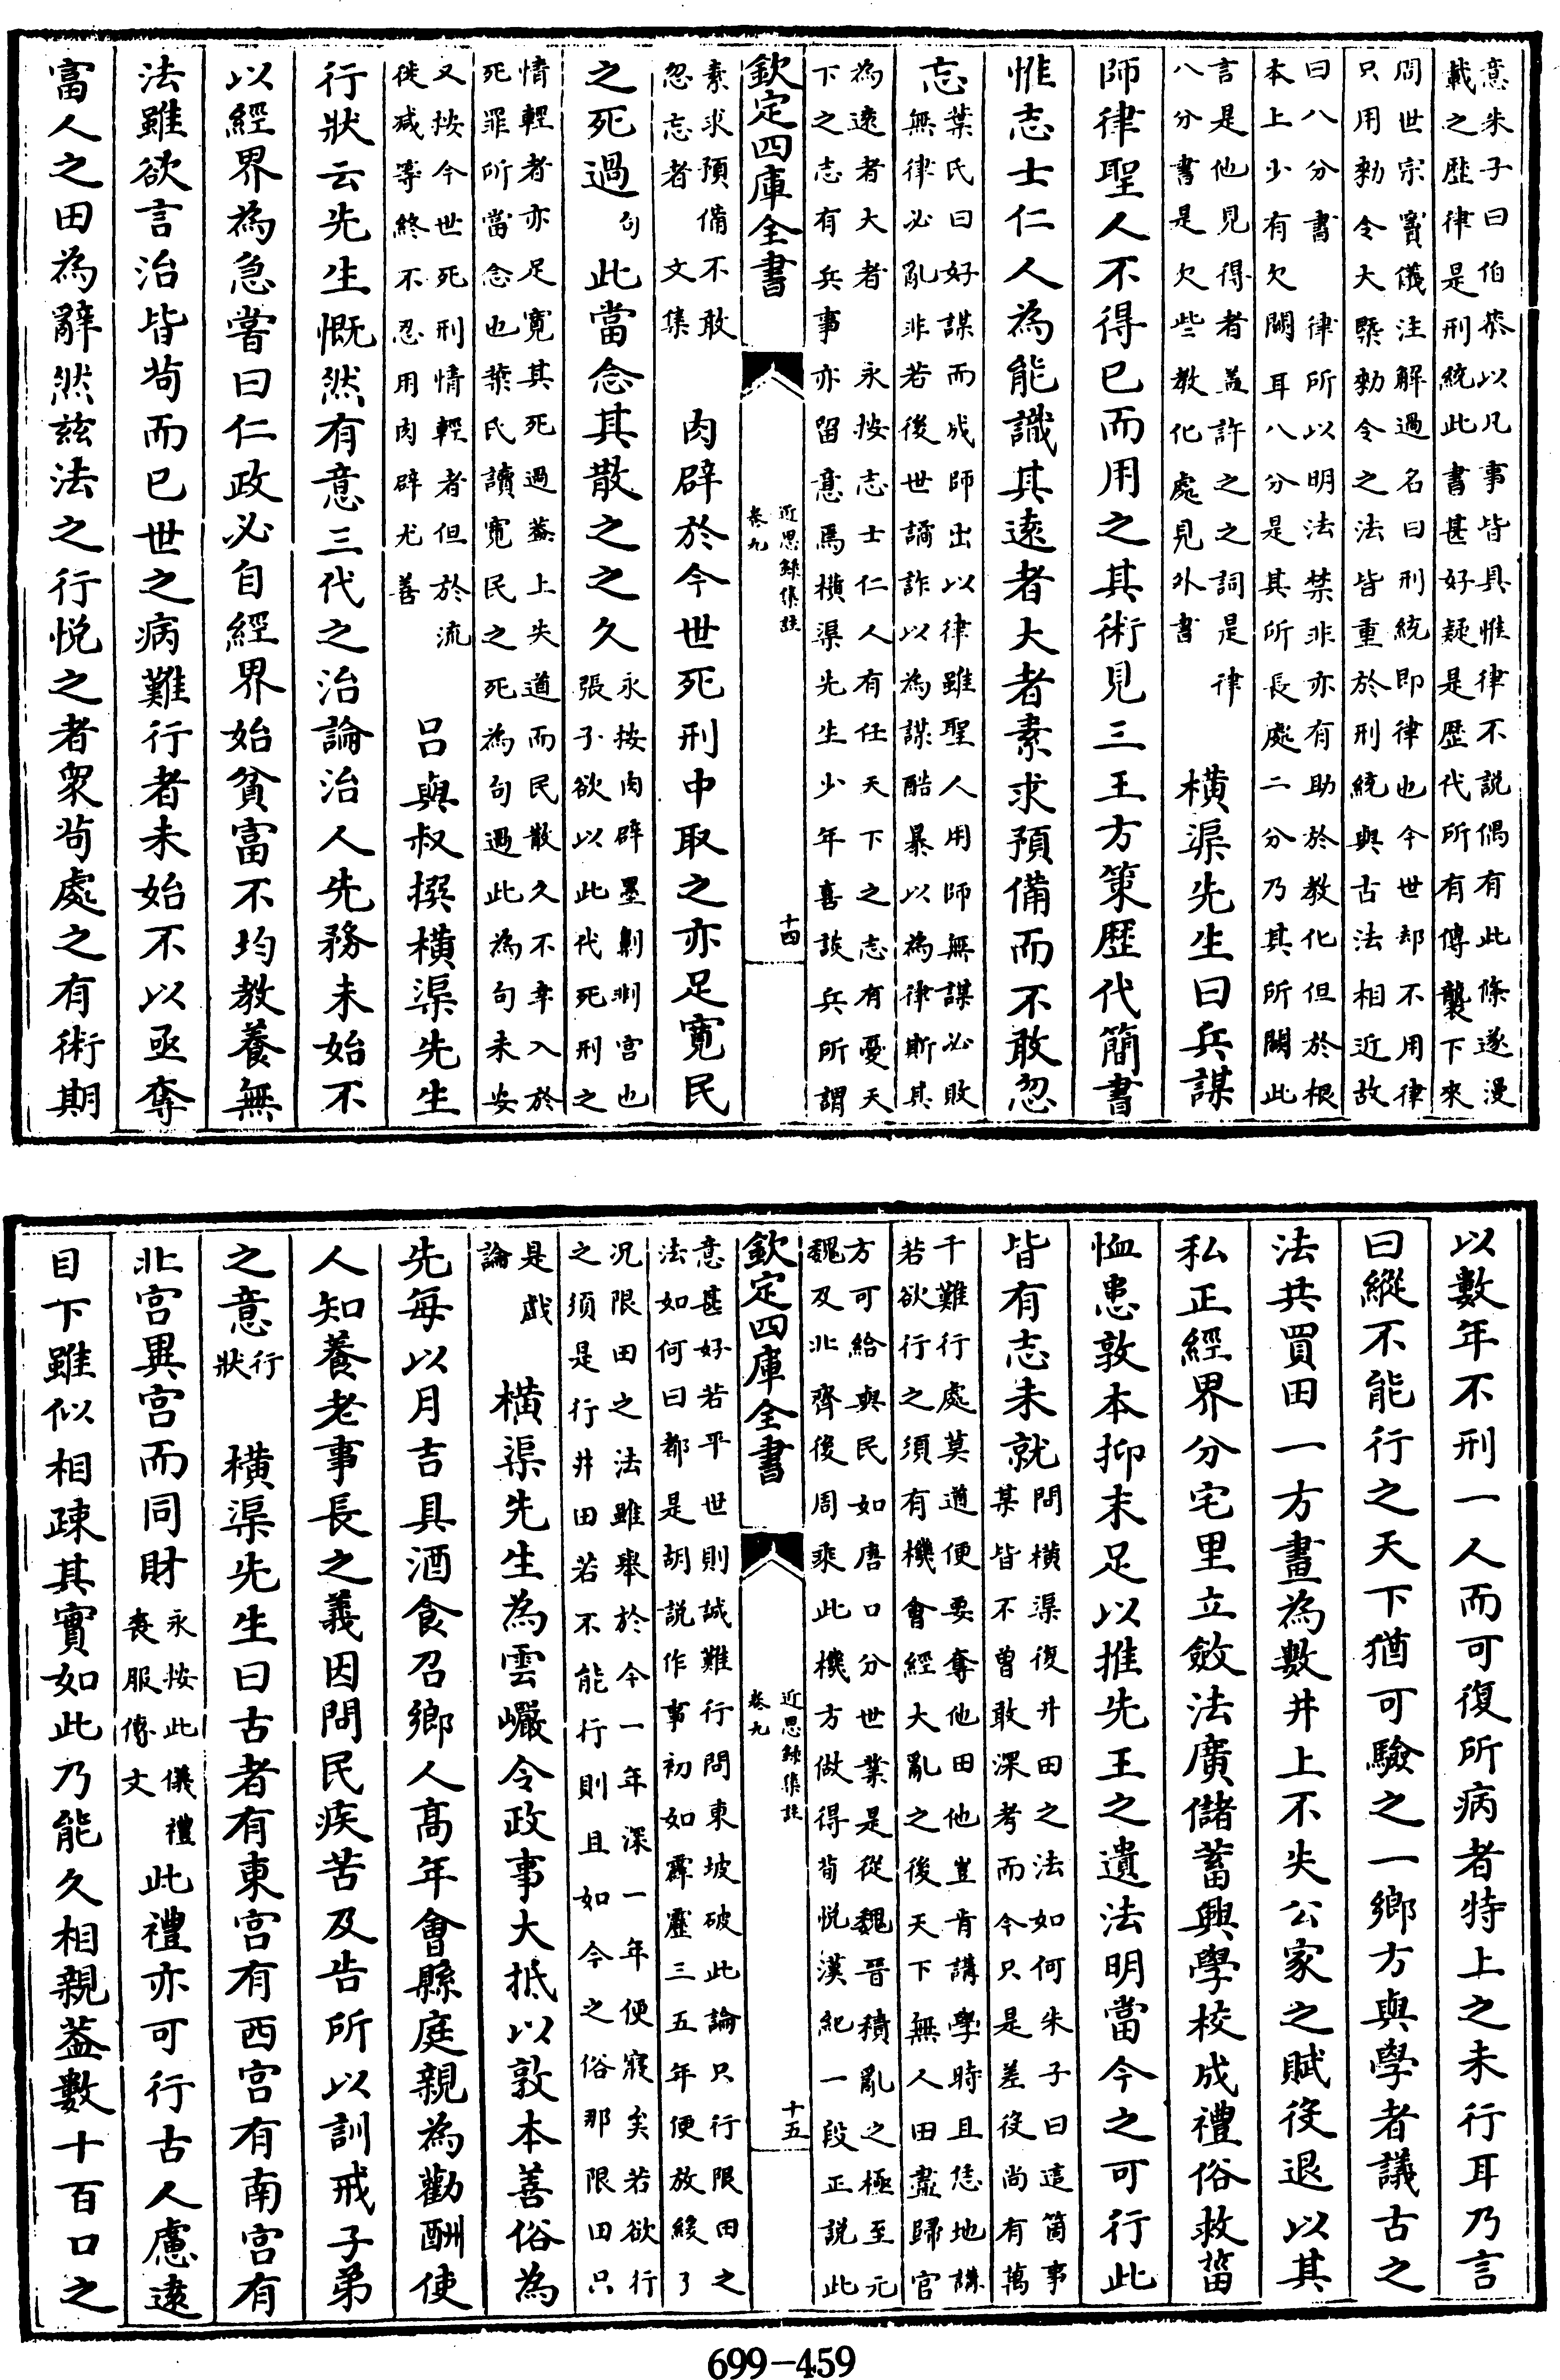 意朱子曰伯恭以凡事皆具惟律不説偶有此條遂漫
載之歴律是刑統此書甚好疑是歴代所有傳襲下來
問世宗竇儀注解過名曰刑統即律也今世却不用律
只用勅令大槩勅令之法皆重於刑統與古法相近故
曰八分書 律所以明法禁非亦有助於教化但於根
本上少有欠闕耳八分是其所長處二分乃其所闕此
言是他見得者葢許之之詞是律
八分書是欠些教化處見外書
橫渠先生曰兵謀
師律聖人不得已而用之其術見三王方策歴代簡書
惟志士仁人為能識其逺者大者素求預備而不敢忽
忘
葉氏曰好謀而成師出以律雖聖人用師無謀必敗
無律必亂非若後世譎詐以為謀酷暴以為律斯其
為逺者大者 永按志士仁人有任天下之志有憂天
下之志有兵事亦留意焉橫渠先生少年喜談兵所謂
欽定四庫全書
近思録集註
卷九
十四
素求預備不敢
忽忘者 文集
肉辟於今世死刑中取之亦足寛民
之死過句此當念其散之之久
永按肉辟墨劓剕宫也
張子欲以此代死刑之
情輕者亦足寛其死過葢上失道而民散久不幸入於
死罪所當念也葉氏讀寛民之死為句過此為句未安
又按今世死刑情輕者但於流
徙减等終不忍用肉辟尤善
吕與叔撰橫渠先生
行狀云先生慨然有意三代之治論治人先務未始不
以經界為急嘗曰仁政必自經界始貧富不均教養無
法雖欲言治皆茍而已世之病難行者未始不以亟奪
富人之田為辭然兹法之行悦之者衆茍處之有術期
以數年不刑一人而可復所病者特上之未行耳乃言
曰縱不能行之天下猶可驗之一鄉方與學者議古之
法共買田一方畫為數井上不失公家之賦役退以其
私正經界分宅里立斂法廣儲蓄興學校成禮俗救菑
恤患敦本抑末足以推先王之遺法明當今之可行此
皆有志未就
問橫渠復井田之法如何朱子曰這箇事
某皆不曾敢深考而今只是差役尚有萬
千難行處莫道便要奪他田他豈肯講學時且恁地講
若欲行之須有機㑹經大亂之後天下無人田盡歸官
方可給與民如唐口分世業是從魏晉積亂之極至元
魏及北齊後周乘此機方做得荀悦漢紀一段正説此
欽定四庫全書
近思録集註
卷九
十五
意甚好若平世則誠難行問東坡破此論只行限田之
法如何曰都是胡説作事初如霹靂三五年便放緩了
况限田之法雖舉於今一年深一年便寢矣若欲行
之須是行井田若不能行則且如今之俗那限田只
是戯
論
橫渠先生為雲巖令政事大抵以敦本善俗為
先每以月吉具酒食召鄉人髙年㑹縣庭親為勸酬使
人知養老事長之義因問民疾苦及告所以訓戒子弟
之意行狀
橫渠先生曰古者有東宫有西宫有南宫有
北宫異宫而同財
永按此儀禮
喪服傳文
此禮亦可行古人慮逺
目下雖似相疎其實如此乃能久相親葢數十百口之
699-459